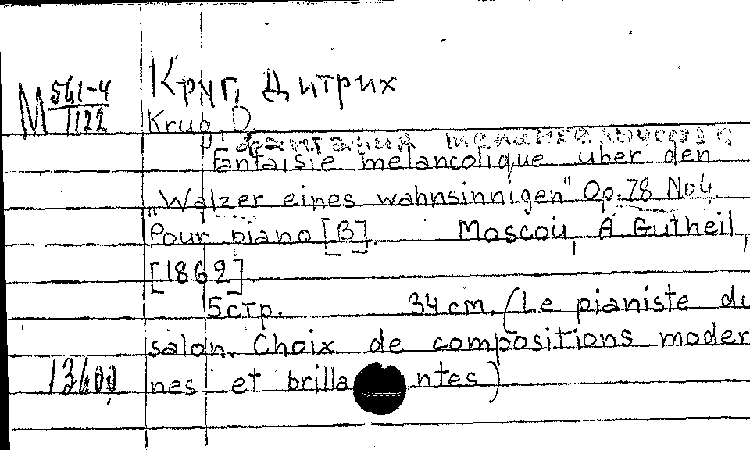 Круг, Дитрих
M 561-4
1122
Krug, D.
Fantaisie melancolique über den
„Walzer eines wahnsinnigen" Op.78 No4
Pour piano [B]. Moscou, A Gutheil,
[1869]
5 стр. 34 cm. (Le pianiste du
salon. Choix de compositions moder
nes et brilla ntes)